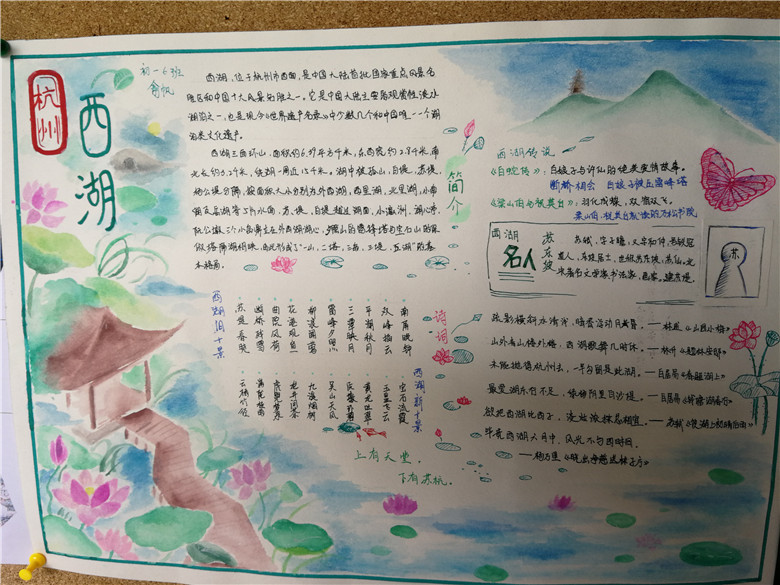 杭州
西湖
初一6班
西湖，位于杭州市西面，是中国大陆首批国家重点风景名
胜区和中国十大风景名胜之一。它是中国大陆主要的观赏性淡水
湖泊之一，也是现今《世界遗产名录》中少数几个和中国唯一一个湖
泊类文化遗产。
西湖三面环山，面积约6.39平方千米，东西宽约2.8千米，南
北长约3.2千米，绕湖一周近15千米。湖中被孤山、白堤、苏堤、
杨公堤分隔，按面积大小分别为外西湖、西里湖、北里湖、小南
湖及岳湖等5片水面，苏堤、白堤越过湖面，小瀛洲、湖心亭、
阮公墩三个小岛鼎立在外西湖湖心，夕照山的雷峰塔与宝石山的保
俶塔隔湖相映，由此形成了“一山、二塔、三岛、三堤、五湖”的基
本格局。
简介
西湖传说
《白蛇传》：白娘子与许仙的绝美爱情故事。
断桥相会 白娘子被压雷峰塔
《梁山伯与祝英台》：羽化成蝶，双宿双飞。
梁山伯、祝英台就读的万松书院
西湖
名人
苏东坡
苏
诗词
疏影横斜水清浅，暗香浮动月黄昏。——林逋《山园小梅》
山外青山楼外楼，西湖歌舞几时休。——林升《题临安邸》
未能抛得杭州去，一半勾留是此湖。——白居易《春题湖上》
最爱湖东行不足，绿杨阴里白沙堤。——白居易《钱塘湖春行》
欲把西湖比西子，淡妆浓抹总相宜。——苏轼《饮湖上初晴后雨》
毕竟西湖六月中，风光不与四时同。
——杨万里《晓出净慈送林子方》
西湖旧十景
苏堤春晓
断桥残雪
曲院风荷
花港观鱼
柳浪闻莺
雷峰夕照
三潭印月
平湖秋月
双峰插云
南屏晚钟
西湖新十景
云栖竹径
满陇桂雨
虎跑梦泉
龙井问茶
九溪烟树
吴山天风
阮墩环碧
黄龙吐翠
玉皇飞云
宝石流霞
上有天堂，
下有苏杭。